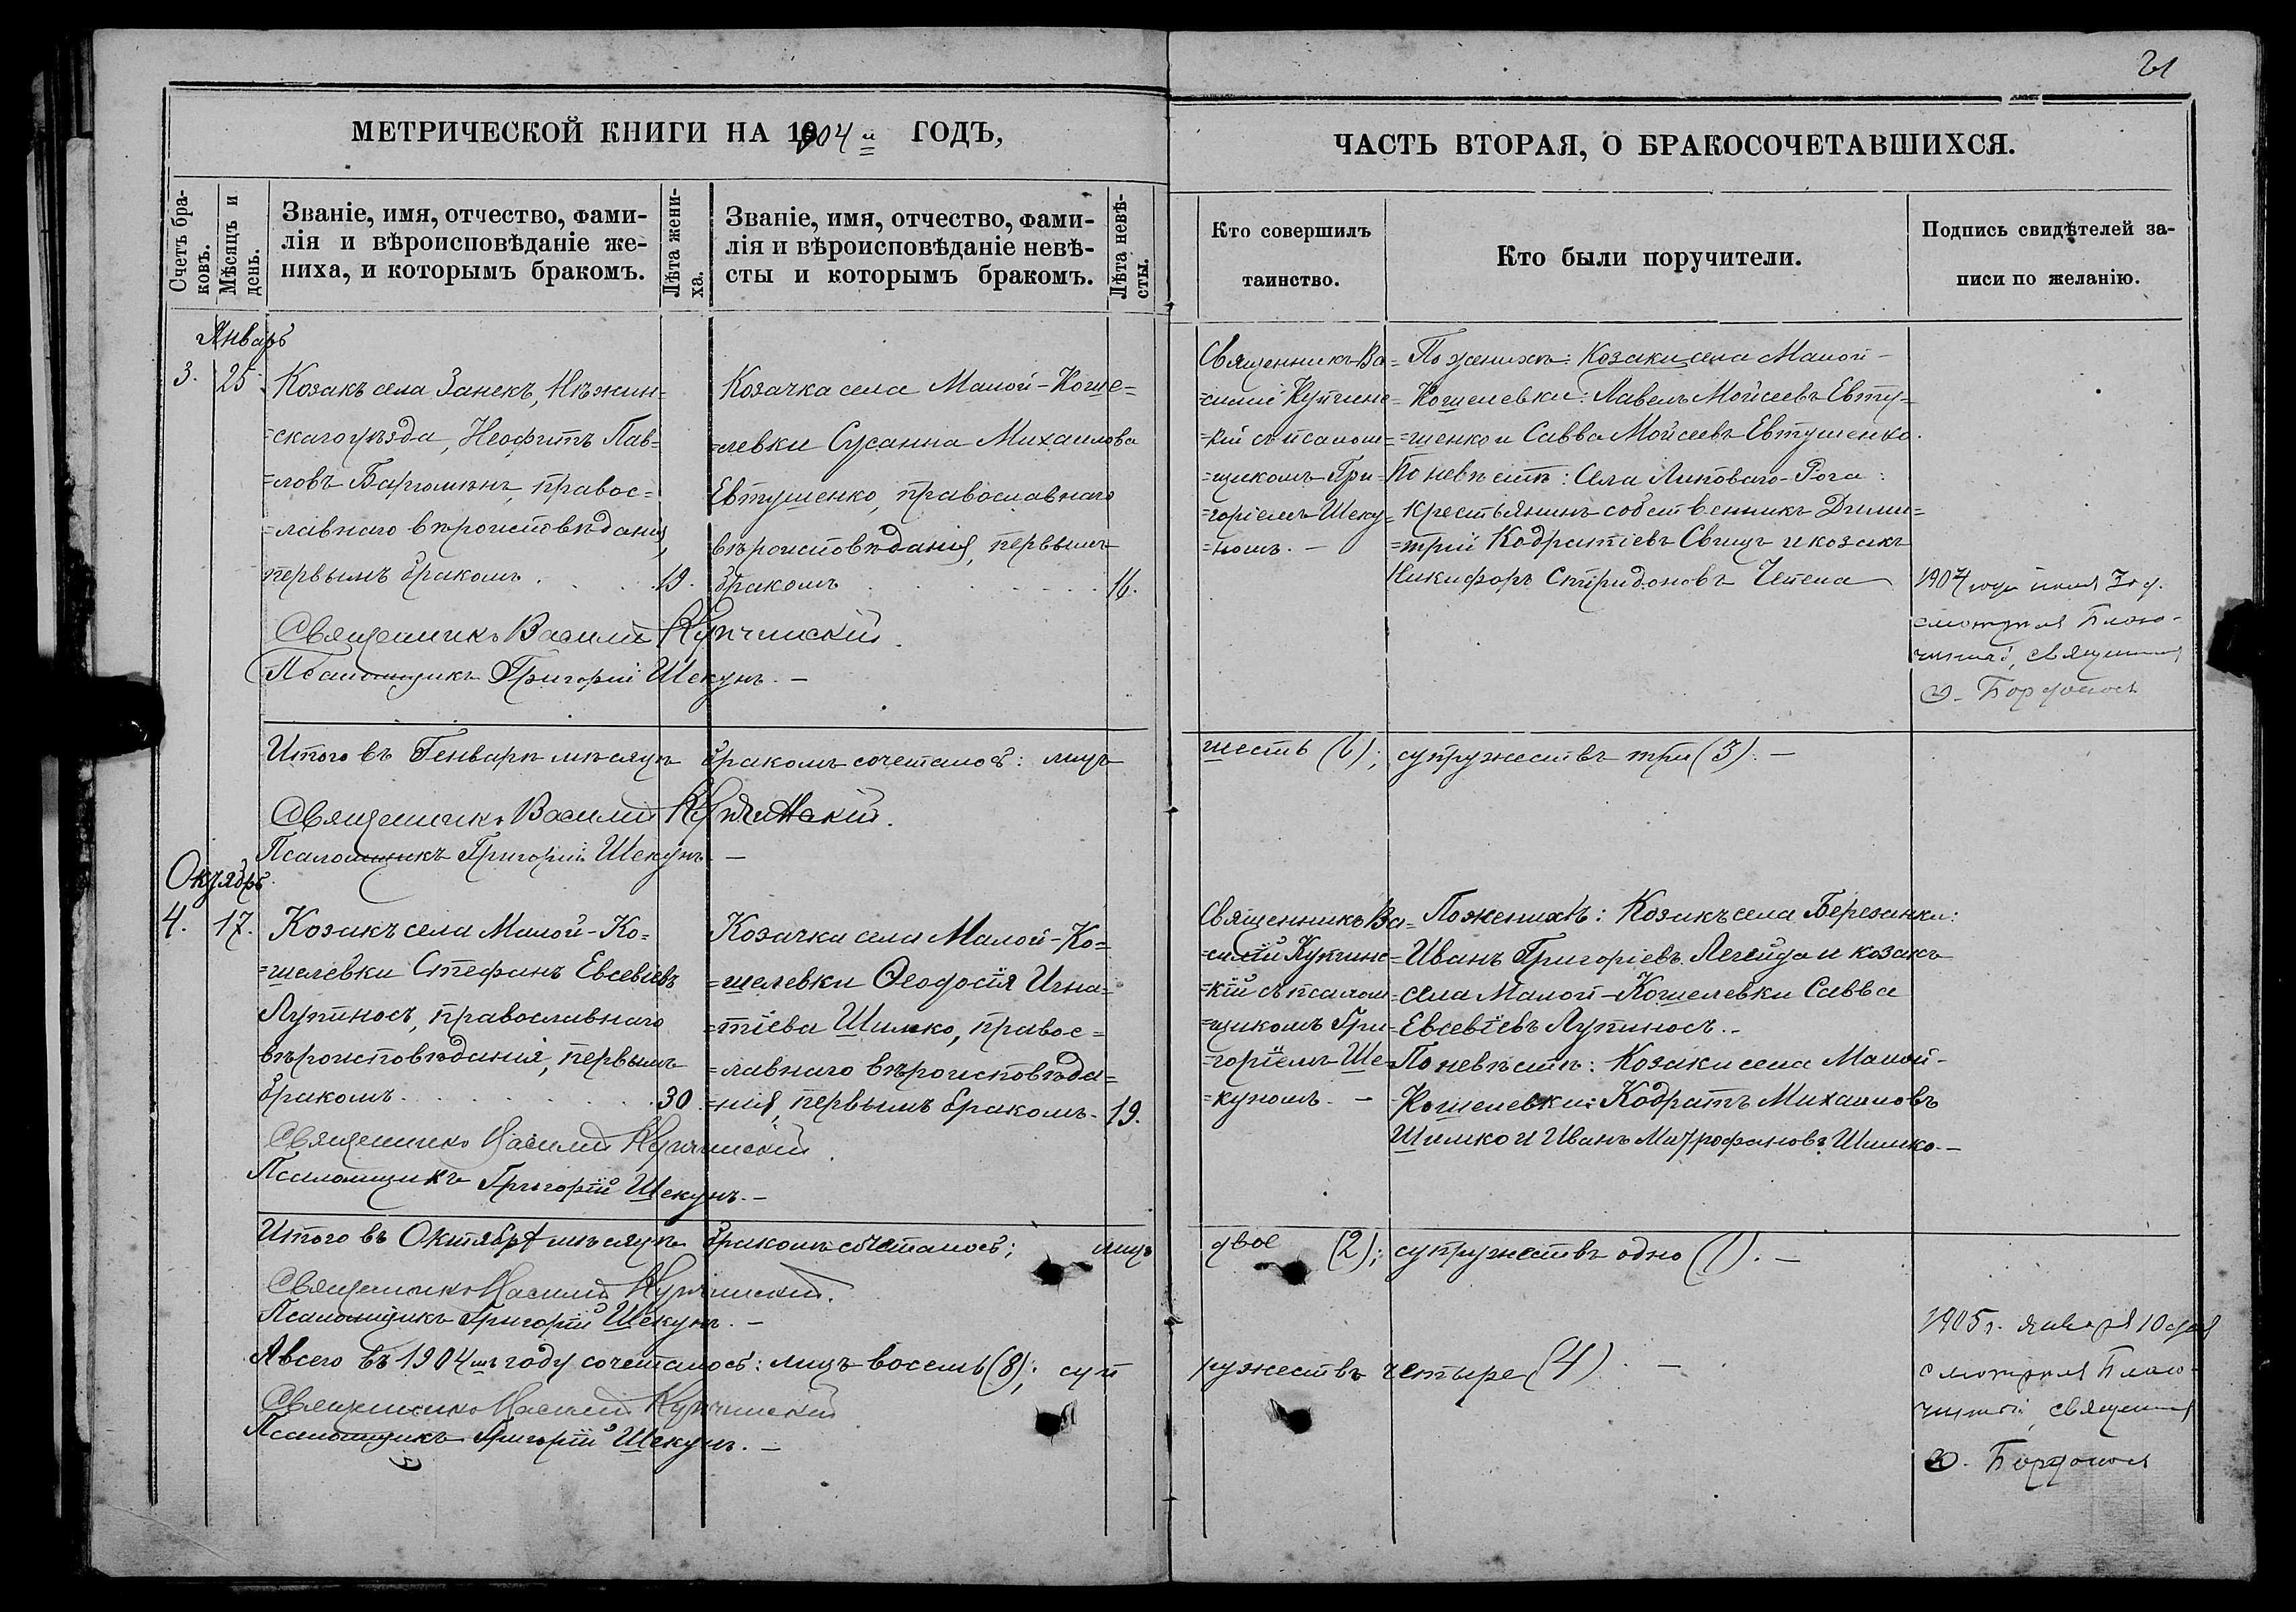 21
МЕТРИЧЕСКОЙ КНИГИ НА 1904й ГОДЪ,
ЧАСТЬ ВТОРАЯ, О БРАКОСОЧЕТАВШИХСЯ.
Счетъ бра-
ковъ.
Мѣсяцъ и
день.
Званіе, имя, отчество, фами-
лія и вѣроисповѣданіе же-
ниха, и которымъ бракомъ.
Лѣта жени-
ха.
Званіе, имя, отчество, фами-
лія и вѣроисповѣданіе невѣ-
сты и которымъ бракомъ.
Лѣта невѣ-
сты.
Кто совершилъ
таинство.
Кто были поручители.
Подпись свидѣтелей за-
писи по желанію.
Январь
3. 25.
Козакъ села Занекъ, Нѣжин=
=скаго уѣзда, Неофитъ Пав=
=ловъ правос=
=лавнаго вѣроисповѣданія,
первымъ бракомъ. 19.
Козачка села Малой-Коше=
=левки Сусанна Михаилова
Евтушенко, православнаго
вѣроисповѣданія, первымъ
бракомъ 16.
Священникъ Ва=
=силій Купчинс=
=кій съ псалом=
=щикомъ Гри=
=горіемъ Шеку=
=номъ. —
По женихѣ: Козаки села Малой-
Кошелевки: Павелъ Мойсеевъ Евту=
=шенко и Савва Мойсеевъ Евтушенко.
По невѣстѣ: Села Липоваго-Рога:
крестьянинъ собственникъ Дими=
=трій Кодратіевъ Свищъ и козакъ
Никифоръ Спиридоновъ Чепела
1904 года іюля 3го д.
смотрѣлъ Благо-
чинный, священникъ
Священникъ Василій Купчинскій.
Псаломщикъ Григорій Шекунъ. —
Итого въ Генварѣ мѣсяцѣ бракомъ сочеталось: лицъ шесть (6); супружествъ три (3). —
Священникъ Василій Купчинскій.
Псаломщикъ Григорій Шекунъ. —
Октябрь
4. 17.
Козакъ села Малой-Ко=
=шелевки Стефанъ Евсевіевъ
Лупиносъ, православнаго
вѣроисповѣданія, первымъ
бракомъ. 30.
Козачка села Малой-Ко=
=шелевки Ѳеодосія Игна=
=тіева Шимко, правос=
=лавнаго вѣроисповѣда=
=нія, первымъ бракомъ. 19.
Священникъ Ва=
=силій Купчинс=
=кій съ псалом=
=щикомъ Гри=
=горіемъ Ше=
=куномъ. —
По женихѣ: Козакъ села Березанки:
Иванъ Григоріевъ Легейда и козакъ
села Малой-Кошелевки Савва
Евсевіевъ Лупиносъ.-
По невѣстѣ: Козаки села Малой-
Кошелевки: Кодратъ Михаиловъ
Шимко и Иванъ Митрофановъ Шимко.—
Священникъ Василій Купчинскій.
Псаломщикъ Григорій Шекунъ. —
Итого въ Октябрѣ мѣсяцѣ бракомъ сочеталось; лицъ двое (2); супружествъ одно (1). —
Священникъ Василій Купчинскій.
Псаломщикъ Григорій Шекунъ. —
А всего въ 1904мъ году сочеталось: лицъ восемь (8); супружествъ четыре (4). —
Священникъ Василій Купчинскій
Псаломщикъ Григорій Шекунъ. —
1905 г. января 10 дня
смотрѣлъ Благо-
чинный, священникъ